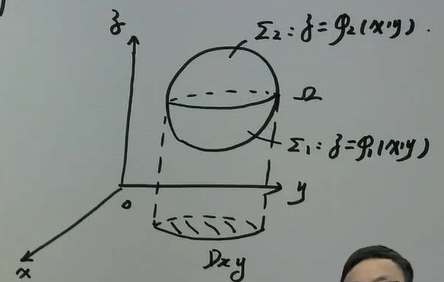 z
Σ₂: z=φ₂(x,y).
Ω
Σ₁: z=φ₁(x,y)
o
y
x
Dxy